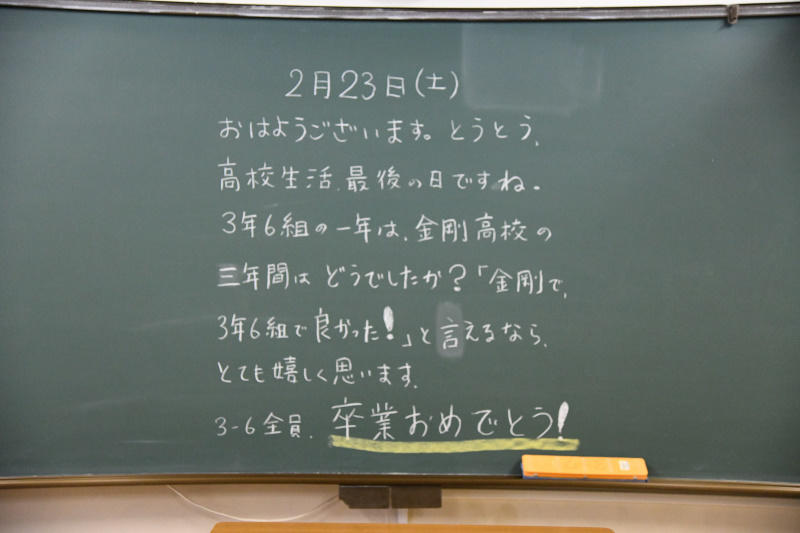 2月23日(土)
おはようございます。とうとう、
高校生活、最後の日ですね。
3年6組の一年は、金剛高校の
三年間はどうでしたか?「金剛で、
3年6組で良かった!」と言えるなら、
とても嬉しく思います。
3-6全員、卒業おめでとう!